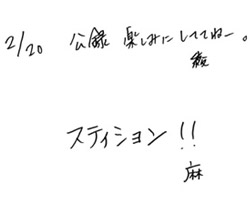 2/20 公録 楽しみにしててねー。
綾
スティション!!
麻